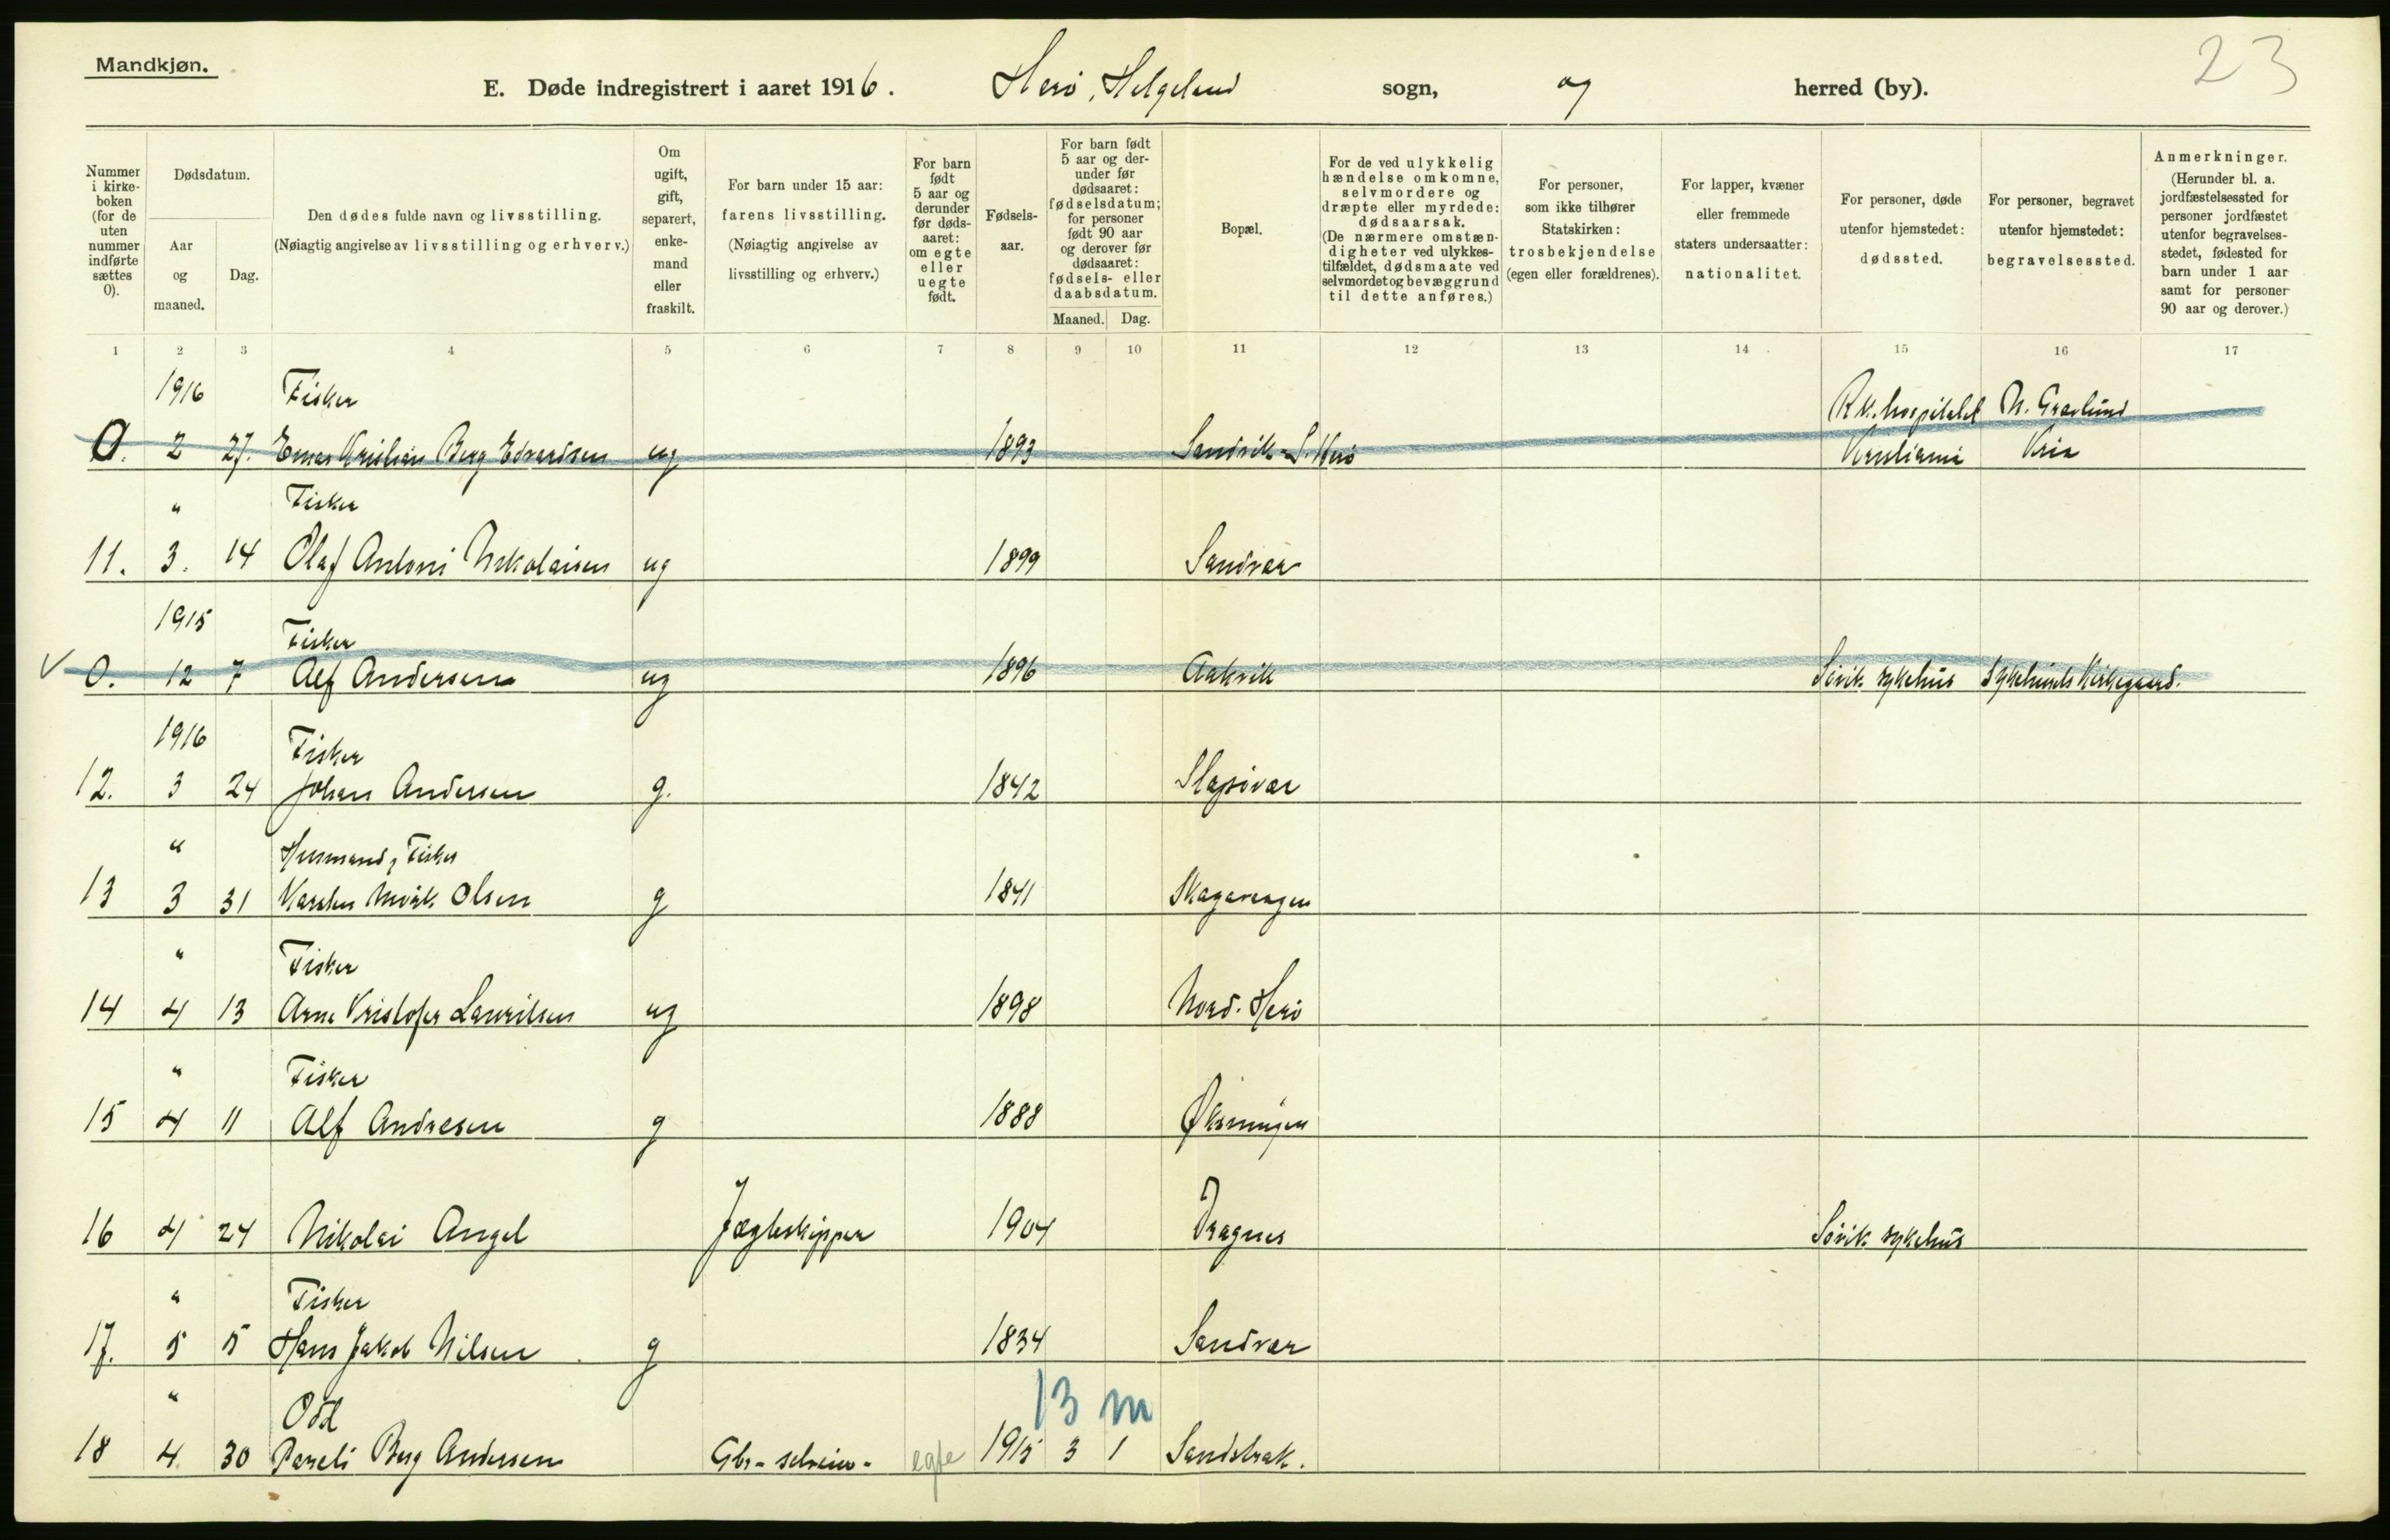 Mandkjøn.
23
E. Døde indregistrert i aaret 1916. Herø, Helgeland sogn, og herred (by).
Nummer i kirkeboken (for de uten nummer indførte sættes 0).
Dødsdatum.
Aar og maaned.
Dag.
Den dødes fulde navn og livsstilling.
(Nøiagtig angivelse av livsstilling og erhverv.)
Om ugift, gift, separert, enkemand eller fraskilt.
For barn under 15 aar: farens livsstilling.
(Nøiagtig angivelse av livsstilling og erhverv.)
For barn født 5 aar og derunder før dødsaaret: om egte eller uegte født.
Fødselsaar.
For barn født 5 aar og derunder før dødsaaret: fødselsdatum; for personer født 90 aar og derover før dødsaaret: fødsels- eller daabsdatum.
Maaned. Dag.
Bopæl.
For de ved ulykkelig hændelse omkomne, selvmordere og dræpte eller myrdede: dødsaarsak.
(De nærmere omstændigheter ved ulykkestilfældet, dødsmaate ved selvmordet og bevæggrund til dette anføres.)
For personer, som ikke tilhører Statskirken: trosbekjendelse (egen eller forældrenes).
For lapper, kvæner eller fremmede staters undersaatter: nationalitet.
For personer, døde utenfor hjemstedet: dødssted.
For personer, begravet utenfor hjemstedet: begravelsessted.
Anmerkninger.
(Herunder bl. a. jordfæstelsessted for personer jordfæstet utenfor begravelsesstedet, fødested for barn under 1 aar samt for personer 90 aar og derover.)
1 2 3 4 5 6 7 8 9 10 11 12 13 14 15 16 17
1916 Fisker R.V. hospitalet N. Gravlund
0. 2 27. Kristian Berg Edvardsen ug 1893 Sandvik - S. Herø Kristiania Kria
" Fisker
11. 3. 14 Olaf Antoni Nikolaisen ug 1899 Sandvær
1915 Fisker
0. 12 7 Alf Andersen ug 1896 Aakvik Søvik sykehus Sykehusets Kirkegaard.
1916 Fisker
12. 3 24 Johan Andersen g. 1842 Slapøvær
" Husmand, Fisker
13 3 31 Olsen g 1841
" Fisker
14 4 13 Arne Kristofer Lauritsen ug 1898 Nord-Herø
" Fisker
15 4 11 Alf Andresen g 1888 Øksningen
16 4 24 Nikolai Angel Jægteskipper 1904 Dragnes Søvik sykehus
" Fisker
17. 5 5 Hans Jakob Nilsen g 1834 Sandvær
13 m
" Odd
18 4 30 Pareli Berg Andersen Gbr- selveier- egte 1915 3 1 Sandstrak.